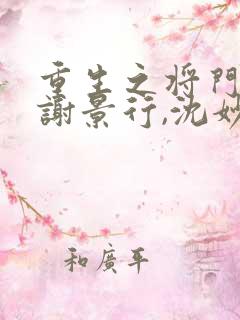 重生之将門
謝景行,沈妙
和廣平